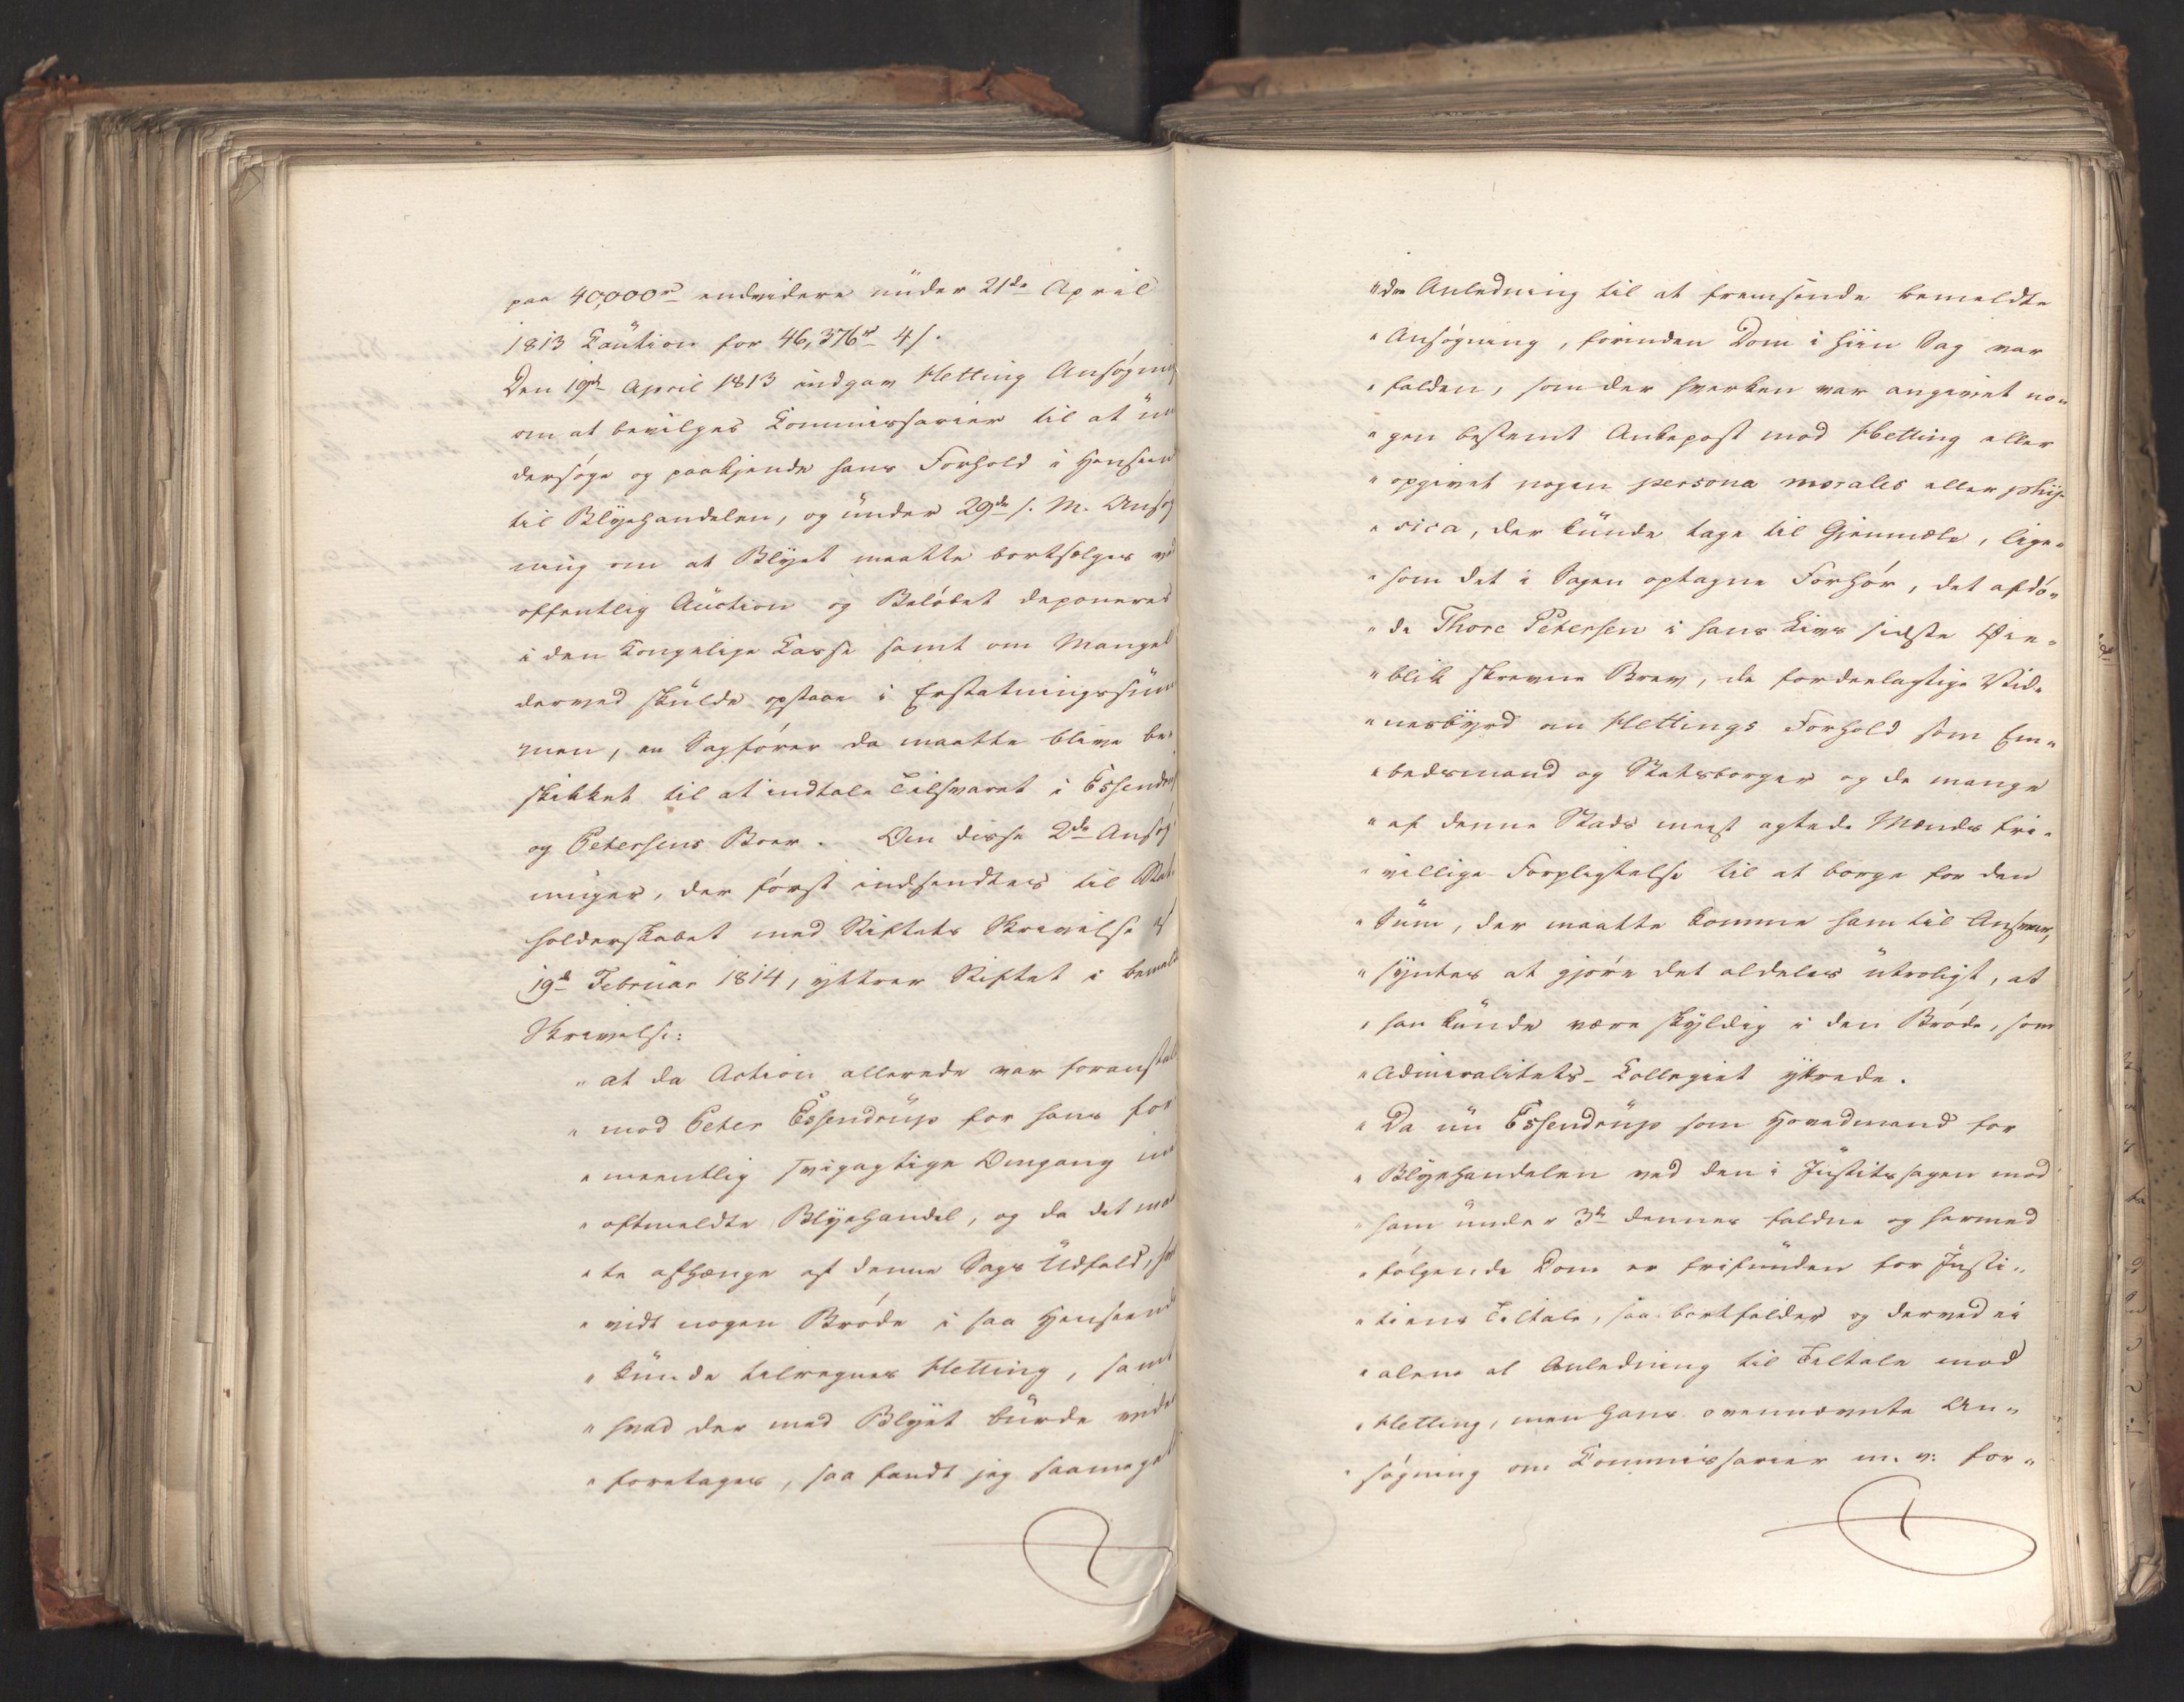 paa 40,000rd endvidere under 21de April
1813 Caution for 46,376rd 4s.
Den 19de April 1813 indgav Hetting Ansøgning
om at bevilges Commissarier til at un
dersøge og paakjende hans Forhold i Henseend
til Blyehandelen, og under 29de s. M. Ansøg
ning om at Blyet maatte bortsælges ved
offentlig Auction og Beløbet deponeres
i den Kongelige Casse samt om Mangel
derved skulde opstaae i Erstatningssum
men, en Sagfører da maatte blive be-
skikket til at indtale Tilsvaret i Essendrops
og Petersens Boer. Om disse 2de Ansøg
ninger, der først indsendtes til Stat-
holderskabet med Stiftets Skrivelse af
19de Februar 1814, yttrer Stiftet i bemeldt
Skrivelse:
" at da Action allerede var foranstalt
" mod Peter Essendrup for hans for
" meentlig svigagtige Omgang med
" oftmeldte Blyehandel, og da det maat
" te afhænge af denne Sags Udfald, hvor
" vidt nogen Brøde i saa Henseende
" kunde tilregnes Hetting, samt
" hvad der med Blyet burde videre
" foretages, saa fandt jeg saameget
" dre Anledning til at fremsende bemeldte
" Ansøgning, forinden Dom i hiin Sag var
" falden, som der hverken var angivet no-
" gen bestemt Ankepost mod Hetting eller
" opgivet nogen persona morales eller phy-
" sica, der kunde tage til Gienmæle, lige-
" som det i Sagen optagne Forhør, det afdø-
" de Thore Petersen i hans Livs sidste Øie-
" blik skrevne Brev, de fordeelagtige Vid-
" nesbyrd om Hettings Forhold som Em-
" bedsmand og Statsborger og de mange
" af denne Stads meest agtede Mænds fri-
" villige Forpligtelse til at borge for den
" Sum, der maatte komme ham til Ansvar,
" syntes at gjøre det aldeles utroligt, at
" han kunde være skyldig i den Brøde, som
" Admiralitets-Collegiet yttrede.
" Da nu Essendrup som Hovedmand for
" Blyehandelen ved den i Justitssagen mod
" ham under 3de dennes faldne og hermed
" følgende Dom er frifunden for Justi-
" tiens Tiltale, saa bortfalder og derved ei
" alene al Anledning til Tiltale mod
" Hetting, men hans ovennævnte An-
" søgning om Commissarier m. v. for-